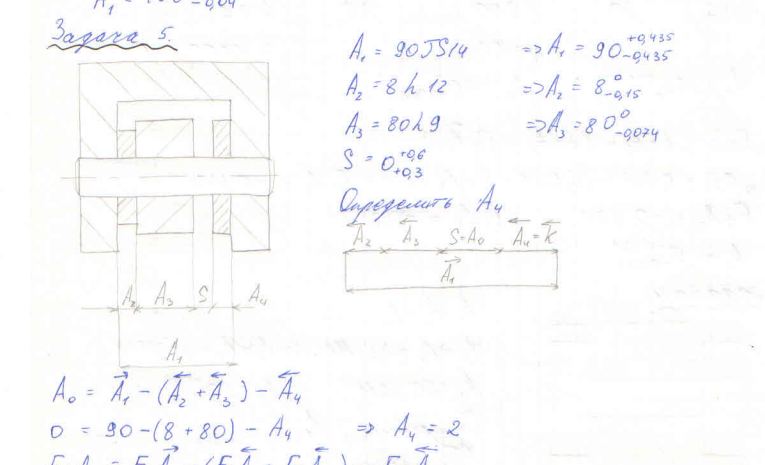 A₁ = 100 -0,04
Задача 5.
A₁ = 90 JS14 => A₁ = 90 +0,435 -0,435
A₂ = 8 h 12 => A₂ = 8 0 -0,15
A₃ = 80 h 9 => A₃ = 80 0 -0,074
S = 0 +0,6 +0,3
Определить A₄
A₂ A₃ S=A₀ A₄=K
A₁
A₂ A₃ S A₄
A₁
A₀ = A₁ - (A₂ + A₃) - A₄
0 = 90 - (8 + 80) - A₄ => A₄ = 2